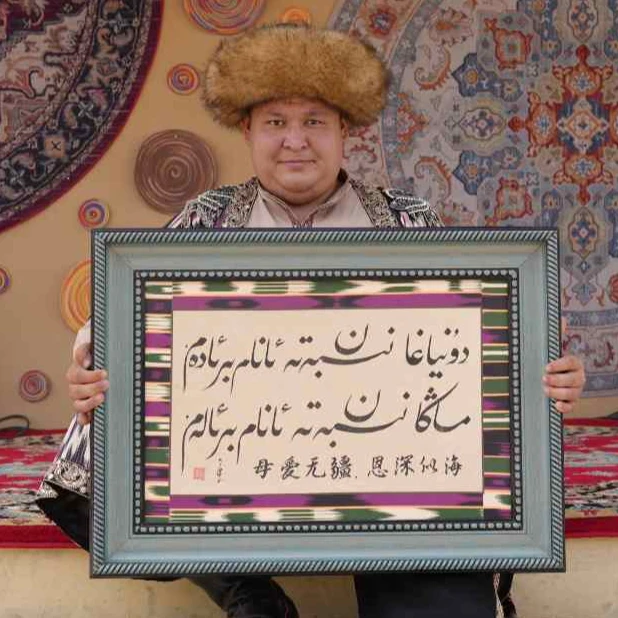 دۇنياغا نىسبەتەن ئانام بىر ئادەم
ماڭا نىسبەتەن ئانام بىر ئالەم
母愛无疆.恩深似海